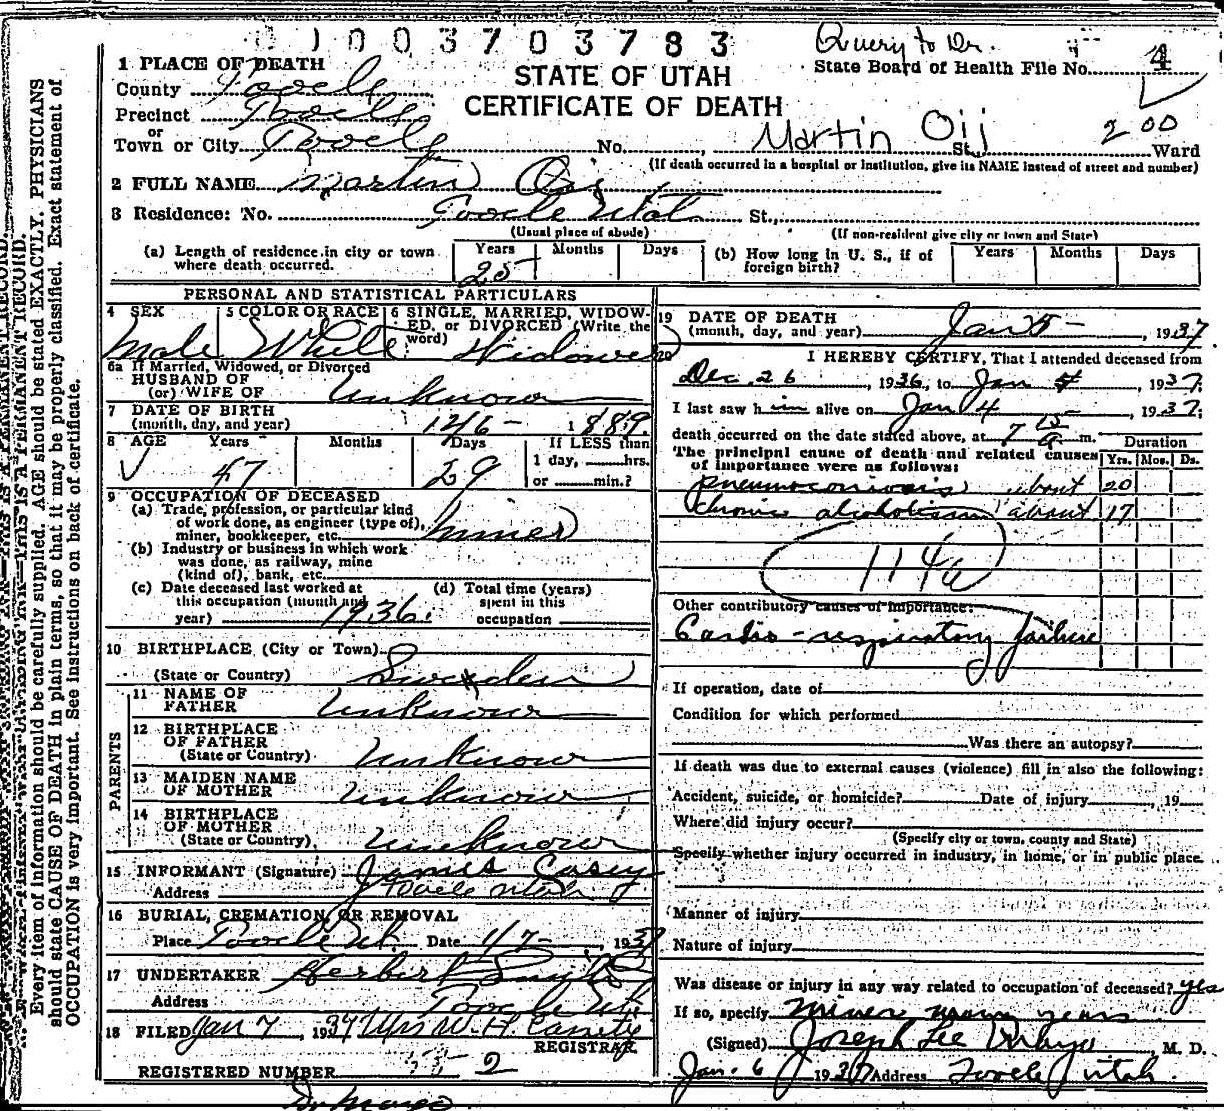 01003703783
Query to Dr.
State Board of Health File No. 4
STATE OF UTAH
CERTIFICATE OF DEATH
1 PLACE OF DEATH
County Tooele
Precinct Tooele
or
Town or City Tooele No. Martin Oij St., 2 00 Ward
(If death occurred in a hospital or institution, give its NAME instead of street and number)
2 FULL NAME Martin Oij
3 Residence: No. Tooele Utah St.,
(Usual place of abode) (If non-resident give city or town and State)
(a) Length of residence in city or town where death occurred. Years 25 Months Days
(b) How long in U. S., if of foreign birth? Years Months Days
PERSONAL AND STATISTICAL PARTICULARS
4 SEX Male
5 COLOR OR RACE White
6 SINGLE, MARRIED, WIDOWED, or DIVORCED (Write the word) Widower
6a If Married, Widowed, or Divorced
HUSBAND OF
(or) WIFE OF Unknown
7 DATE OF BIRTH
(month, day, and year) 12 6 - 1889
8 AGE Years 47 Months Days 29 If LESS than
1 day, hrs.
or min.?
9 OCCUPATION OF DECEASED
(a) Trade, profession, or particular kind
of work done, as engineer (type of),
miner, bookkeeper, etc. Miner
(b) Industry or business in which work
was done, as railway, mine
(kind of), bank, etc.
(c) Date deceased last worked at
this occupation (month and
year) 1936.
(d) Total time (years)
spent in this
occupation
10 BIRTHPLACE (City or Town)
(State or Country) Sweden
PARENTS
11 NAME OF
FATHER Unknown
12 BIRTHPLACE
OF FATHER
(State or Country) Unknown
13 MAIDEN NAME
OF MOTHER Unknown
14 BIRTHPLACE
OF MOTHER
(State or Country) Unknown
15 INFORMANT (Signature) James Casey
Address Tooele Utah
16 BURIAL, CREMATION, OR REMOVAL
Place Tooele Ut. Date 1/7-, 1937
17 UNDERTAKER Herbert
Address Tooele Ut.
18 FILED Jan 7, 1937 Mrs W. H.
REGISTRAR
REGISTERED NUMBER 2
19 DATE OF DEATH
(month, day, and year) Jan 5 - 1937
20 I HEREBY CERTIFY, That I attended deceased from
Dec. 26, 1936, to Jan , 1937;
I last saw him alive on Jan 4, 1937;
death occurred on the date stated above, at 7 15 a m.
The principal cause of death and related causes
of importance were as follows:
Duration
Yrs. Mos. Ds.
pneumoconiosis about 20
chronic alcoholism about 17
114a
Other contributory causes of importance:
Cardio-respiratory failure
If operation, date of
Condition for which performed
Was there an autopsy?
If death was due to external causes (violence) fill in also the following:
Accident, suicide, or homicide? Date of injury, 19
Where did injury occur?
(Specify city or town, county and State)
Specify whether injury occurred in industry, in home, or in public place
Manner of injury
Nature of injury
Was disease or injury in any way related to occupation of deceased? yes
If so, specify miner many years
(Signed) Joseph Lee M. D.
Jan. 6 1937 Address Tooele Utah.
Every item of information should be carefully supplied. AGE should be stated EXACTLY. PHYSICIANS
should state CAUSE OF DEATH in plain terms, so that it may be properly classified. Exact statement of
OCCUPATION is very important. See instructions on back of certificate.
THIS IS A PERMANENT RECORD.